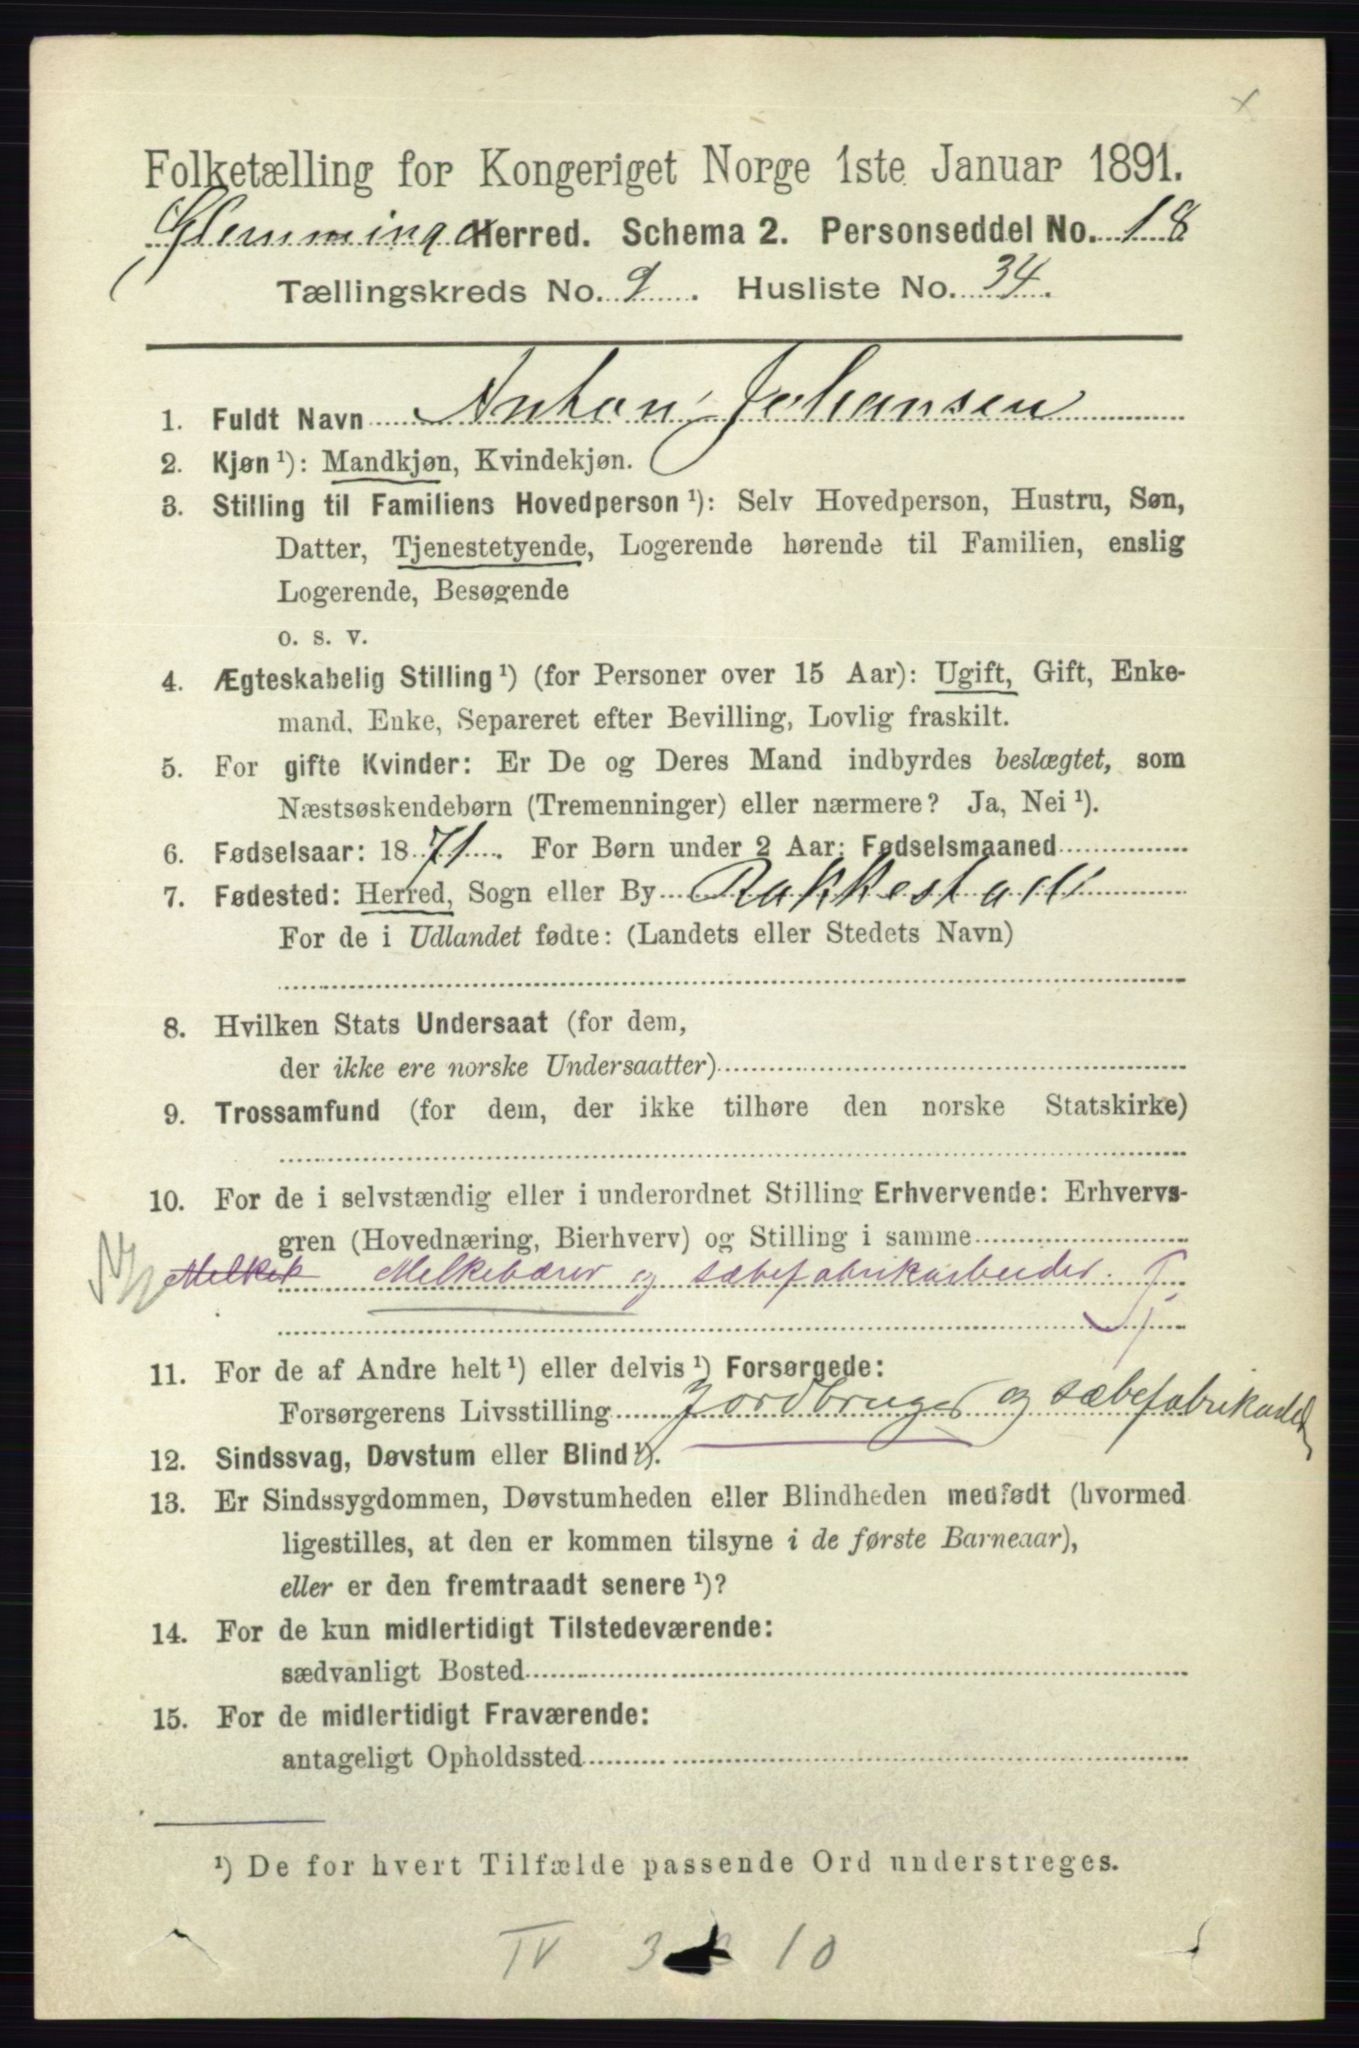 Folketælling for Kongeriget Norge 1ste Januar 1891.
Glemminge Herred. Schema 2. Personseddel No. 18
Tællingskreds No. 9. Husliste No. 34.
1. Fuldt Navn Anton Johansen
2. Kjøn ¹): Mandkjøn, Kvindekjøn.
3. Stilling til Familiens Hovedperson ¹): Selv Hovedperson, Hustru, Søn,
Datter, Tjenestetyende, Logerende hørende til Familien, enslig
Logerende, Besøgende
o. s. v.
4. Ægteskabelig Stilling ¹) (for Personer over 15 Aar): Ugift, Gift, Enke-
mand, Enke, Separeret efter Bevilling, Lovlig fraskilt.
5. For gifte Kvinder: Er De og Deres Mand indbyrdes beslægtet, som
Næstsøskendebørn (Tremenninger) eller nærmere? Ja, Nei ¹).
6. Fødselsaar: 1871. For Børn under 2 Aar: Fødselsmaaned
7. Fødested: Herred, Sogn eller By Rakkestad
For de i Udlandet fødte: (Landets eller Stedets Navn)
8. Hvilken Stats Undersaat (for dem,
der ikke ere norske Undersaatter)
9. Trossamfund (for dem, der ikke tilhøre den norske Statskirke)
10. For de i selvstændig eller i underordnet Stilling Erhvervende: Erhvervs-
gren (Hovednæring, Bierhverv) og Stilling i samme
Melkek Melkebærer og sæbefabrikarbeider. T
11. For de af Andre helt ¹) eller delvis ¹) Forsørgede:
Forsørgerens Livsstilling Jordbruger og sæbefabrikarbd
12. Sindssvag, Døvstum eller Blind ¹).
13. Er Sindssygdommen, Døvstumheden eller Blindheden medfødt (hvormed
ligestilles, at den er kommen tilsyne i de første Barneaar),
eller er den fremtraadt senere ¹)?
14. For de kun midlertidigt Tilstedeværende:
sædvanligt Bosted
15. For de midlertidigt Fraværende:
antageligt Opholdssted
¹) De for hvert Tilfælde passende Ord understreges.
IV 3 10